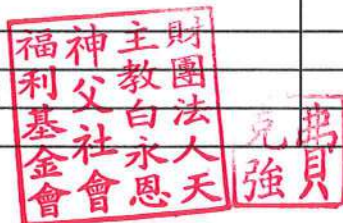 財團法人天
主教白永恩
神父社會
福利基金會
費
克強